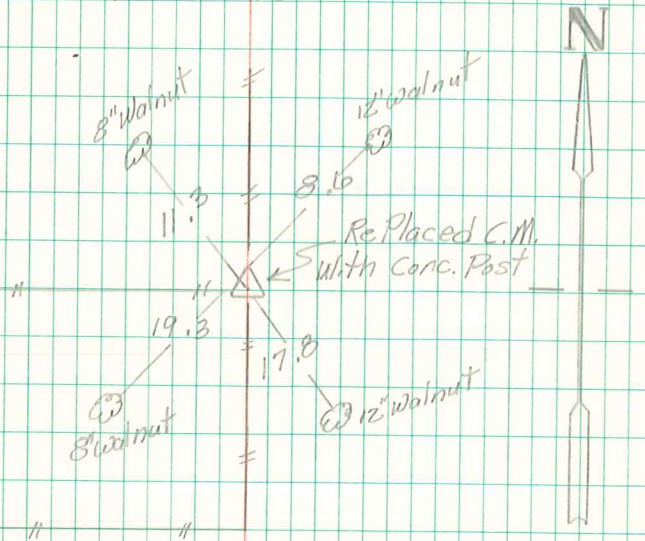 N
8" Walnut
12" walnut
11.3
8.6
RePlaced C.M.
With Conc. Post
19.3
17.8
8" walnut
12" walnut